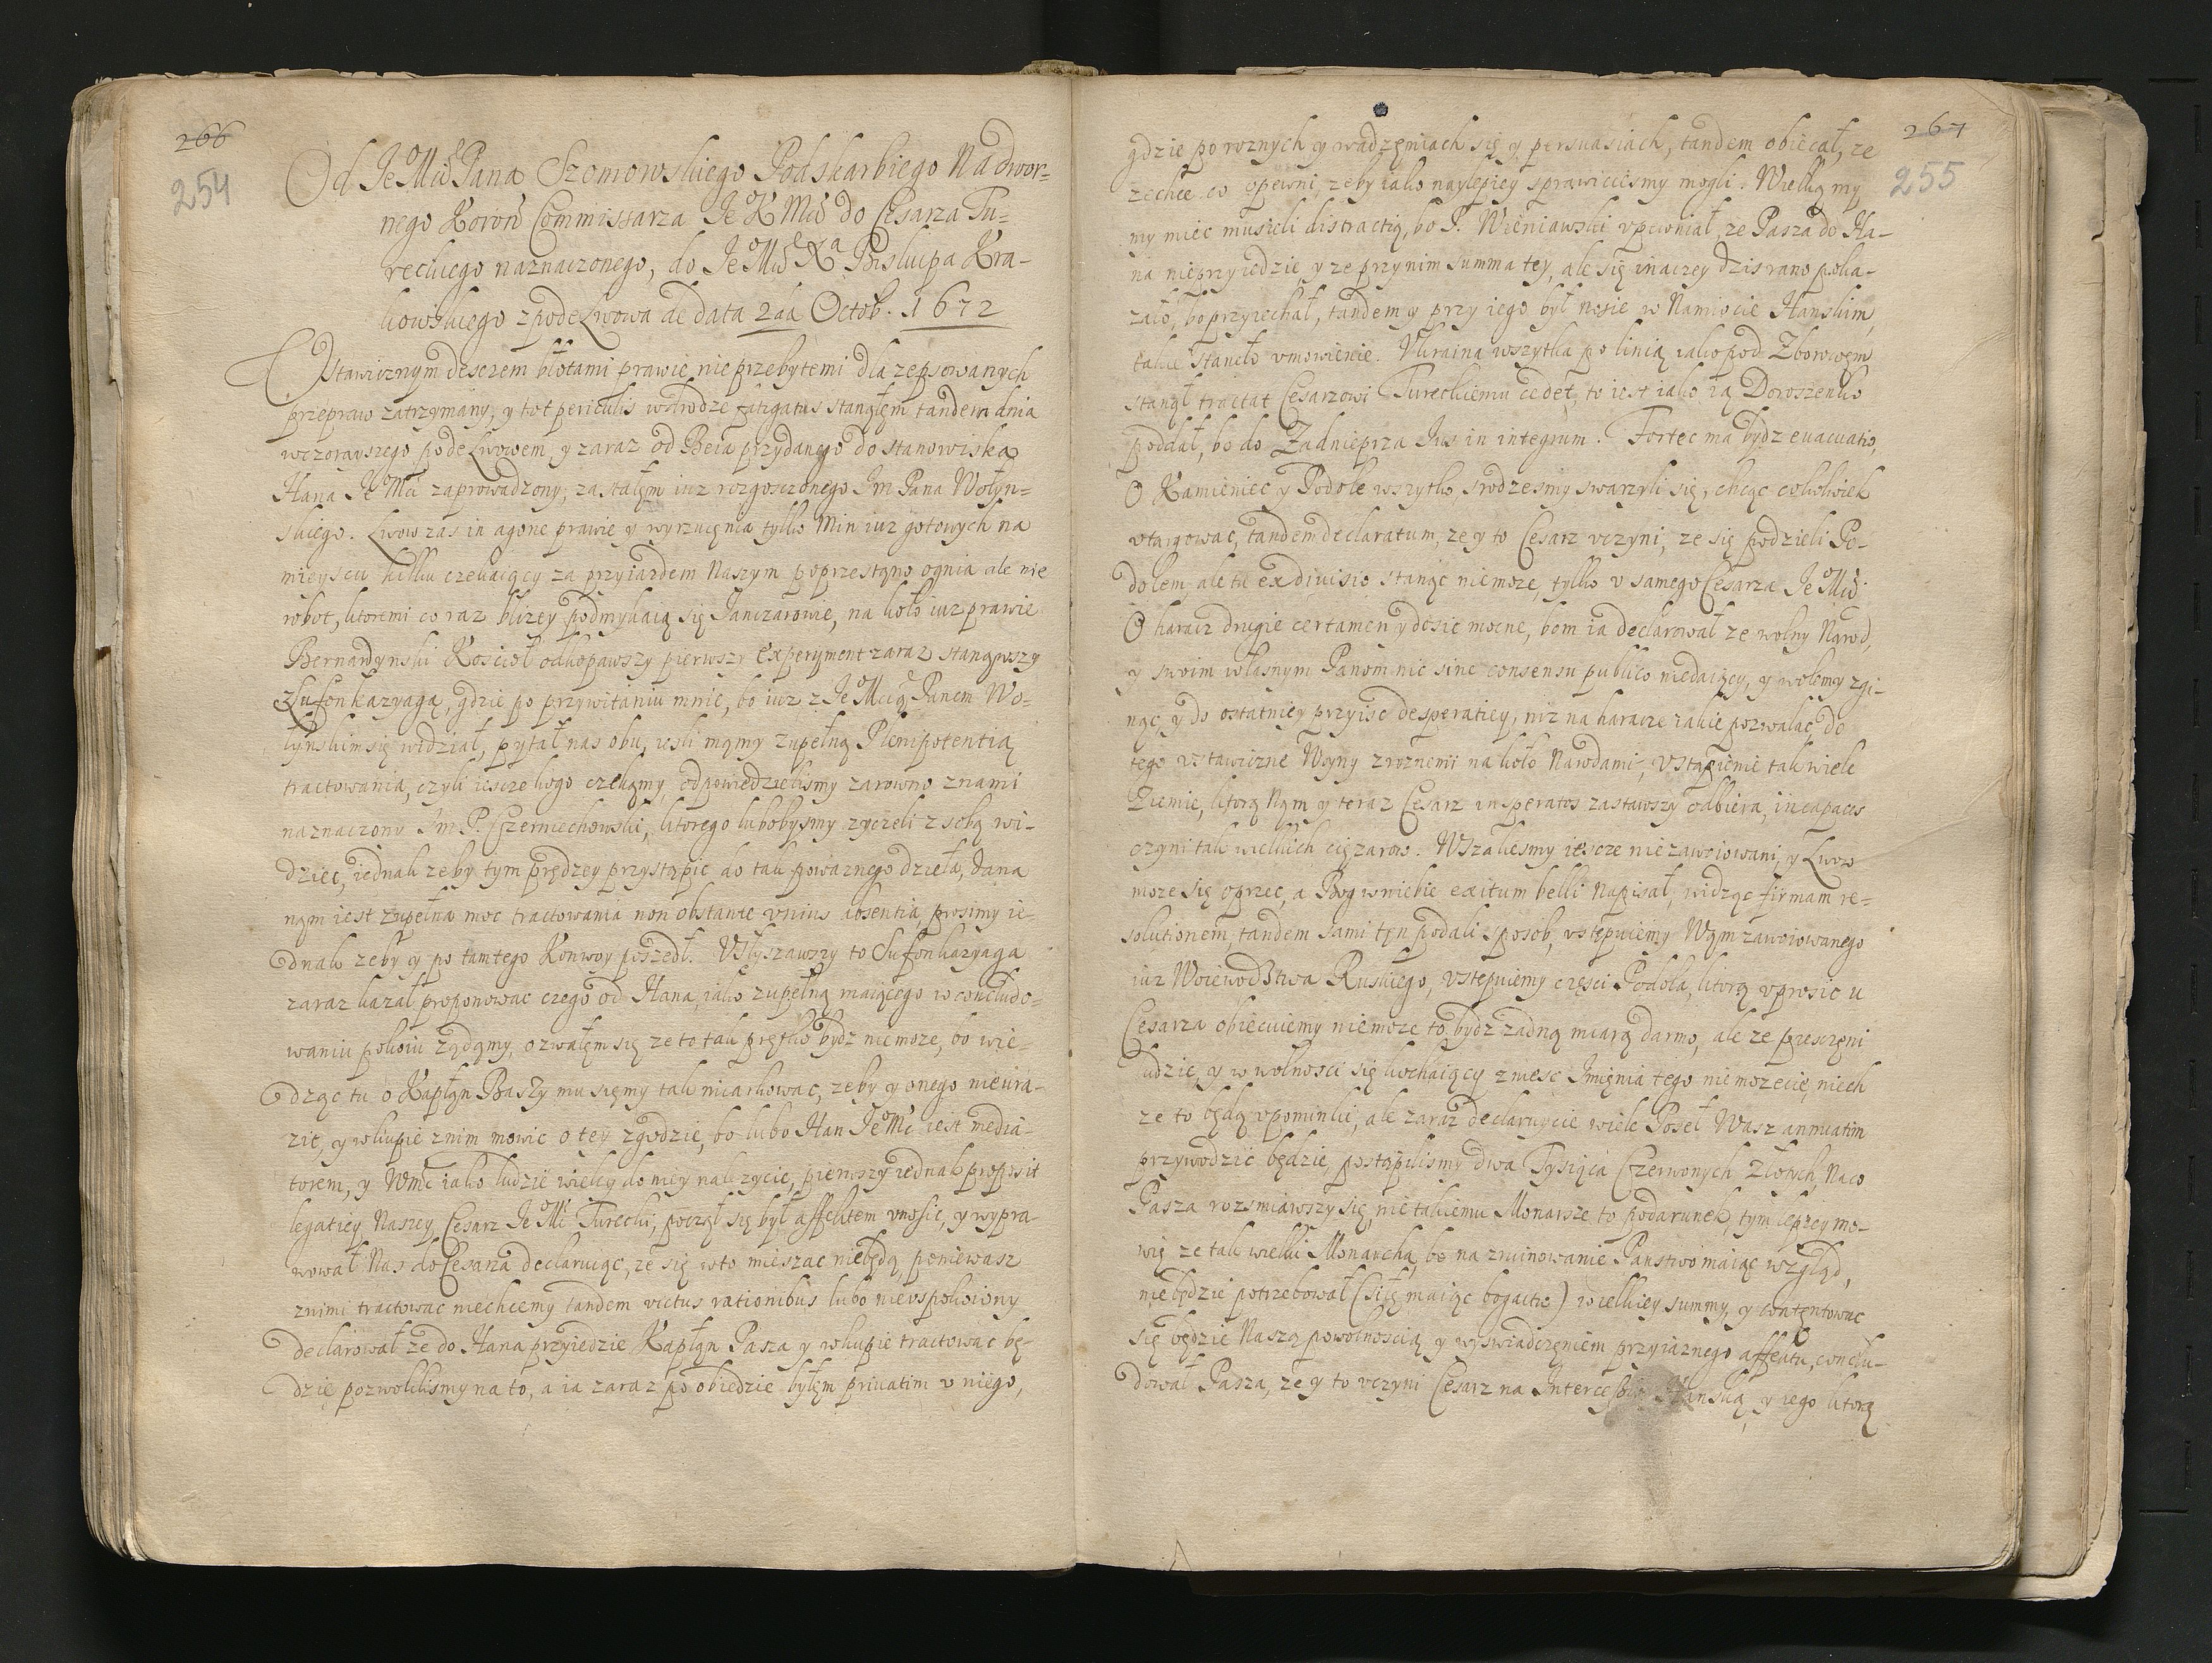 266
254
Od JeoMći Pana Szomowskiego Podskarbiego Nadwor=
nego Koron Commissarza JeoK Mći do Cesarza Tu=
reckiego naznaczonego, do JeoMći Xa Biskupa Kra-
kowskiego zpode Lwowa de data 2da Octob. 1672
Ustawicznym desczem błotami prawie nieprzebytemi dla zepsowanych
przepraw zatrzymany, y tot periculis wskrodze fatigatus stanąłęm tandem dnia
wczorayszego pode Lwowem, y zaraz od Beia przydanego do stanowiska
Hana JeoMci zaprowadzony, zastałęm iuz rozgosczonego Jm Pana Wołyn=
skiego. Lwow zas in agone prawie y wyrzucęnia tylko Min iuz gotowych na
mieyscu kilku czekaiący za przyiazdem Naszym poprzestąno ognia ale nie
robot, ktoremi co raz blizey podmykaią się Janczarowie, na koło iuz prawie
Bernardynski Kosciół odkopawszy pierwszy experyment zaraz stanąwszy
z Sufonkazyagą, gdzie po przywitaniu mnie, bo iuz z JeoMcią Panem Wo=
łynskim się widział, pytał nas obu, iesli mąmy zupełną Plenipotentią
tractowania, czyli iescze kogo czekąmy, odpowiedzielismy zarowno znami
naznaczony Jm P. Czerniechowski, ktorego lubobysmy zyczeli z sobą wi-
dzieć, iednak zeby tym prędzey przystąpic do tak powaznego dzieła, dana
nąm iest zupełna moc tractowania non obstante vnius absentia, prosimy ie-
dnak zeby y po tamtego Konwoy poszedł. Vsłyszawszy to Sufonkazyaga
zaraz kazał proponowac czego od Hana, iako zupełną maiącego w concludo-
waniu pokoiu ządąmy, ozwałęm się ze to tak prętko bydz niemoze, bo wie-
dząc tu o Kapłąn Baszy musięmy tak miarkowac, zeby y onego nieura-
zić, y wkupie znim mowic o tey zgodzie, bo lubo Han JeoMć iest media-
torem, y Wmć iako ludzie wielcy do niey nalezycie, pierwszy iednak proposit
legatiey Naszey, Cesarz JeoMć Turecki, począł się był affektem vnosic, y wypra-
wował Nas do Cesarza declaruiąc, ze się w to mieszac niebędą, poniewasz
znimi tractowac niechcemy tandem victus rationibus lubo nieuspokoiony
declarował ze do Hana przyiedzie Kapłąn Pasza y wkupie tractowac bę-
dzie, pozwolilismy na to, a ia zaraz po obiedzie byłęm priuatim v niego,
267
255
gdzie po roznych y wadzęniach się y persuasiach, tandem obiecał, ze
zechce co opewni, zeby iako naylepiey sprawić cosmy mogli. Wielką my
my miec musieli distractią, bo P. Wieniawski vpewniał, ze Pasza do Ha-
na nieprzyiedzie, y ze przy nim summa tey, ale się inaczey dzis rano poka-
zało, bo przyiechał, tandem y przy iego był nosie w Namiocie Hanskim,
takie stanęło vmowienie. Vkraina wszytka po linią iako pod Zborowęm
stanął tractat Cesarzowi Tureckiemu cedet, to iest iako ią Doroszenko
poddał, bo do Zadnieprza Jus in integrum. Fortec ma bydz euacuatio,
O Kamieniec y Podole wszytko, srodzesmy swarzyli się, chcąc cokolwiek
vtargowac, tandem declaratum, ze y to Cesarz vczyni, ze się podzieli Po-
dolem, ale ta ex diuisio stanąc niemoze, tylko v samego Cesarza JeoMći
O haracz drugie certamen y dosic mocne, bom ia declarował ze wolny Narod,
y swoim własnym Panom nic sine consensu publico niedaiący, y wolemy zgi-
nąc, y do ostatniey przyisc desperatiey, niz na haracze iakie pozwalac, do
tego vstawiczne Woyny zroznemi na koło Narodami, vstąpienie tak wiele
Ziemie, ktorą Nąm y teraz Cesarz insperatos zastawszy odbiera, incapaces
czyni tak wielkich cięzarow. Wszakesmy iescze niezawoiowani, y Lwow
moze się oprzec, a Bog w niebie exitum belli napisał, widząc firmam re-
solutionem, tandem sami tęn podali sposob, vstępuiemy Wąm zawoiowanego
iuz Woiewodztwa Ruskiego, vstepuiemy częsci Podola, ktorą vprosic u
Cesarza obiecuiemy niemoze to bydz zadną miarą darmo, ale ze piesczeni
ludzie, y w wolnosci się kochaiący zniesc Jmięnia tego niemozecie, niech
ze to będą vpominki, ale zaraz declaruycie wiele Poseł Wasz annuatim
przywodzic będzie, postąpilismy dwa Tysiąca Czerwonych Złotych, Naco
Pasza rozsmiawszy się, nie takiemu Monarsze to podarunek, tym lepzey mo-
wię ze tak wielki Monarcha, bo na zruinowanie Panstwo maiąc wzgląd,
nie będzie potrzebował (siłę maiąc bogactw) wielkiey summy, y contentowac
się będzie Naszą powolnoscią y wyswiadczęniem przyiaznego affektu, conclu-
dował Pasza, ze y to vczyni Cesarz na Intercessio Hanską, y iego ktorą